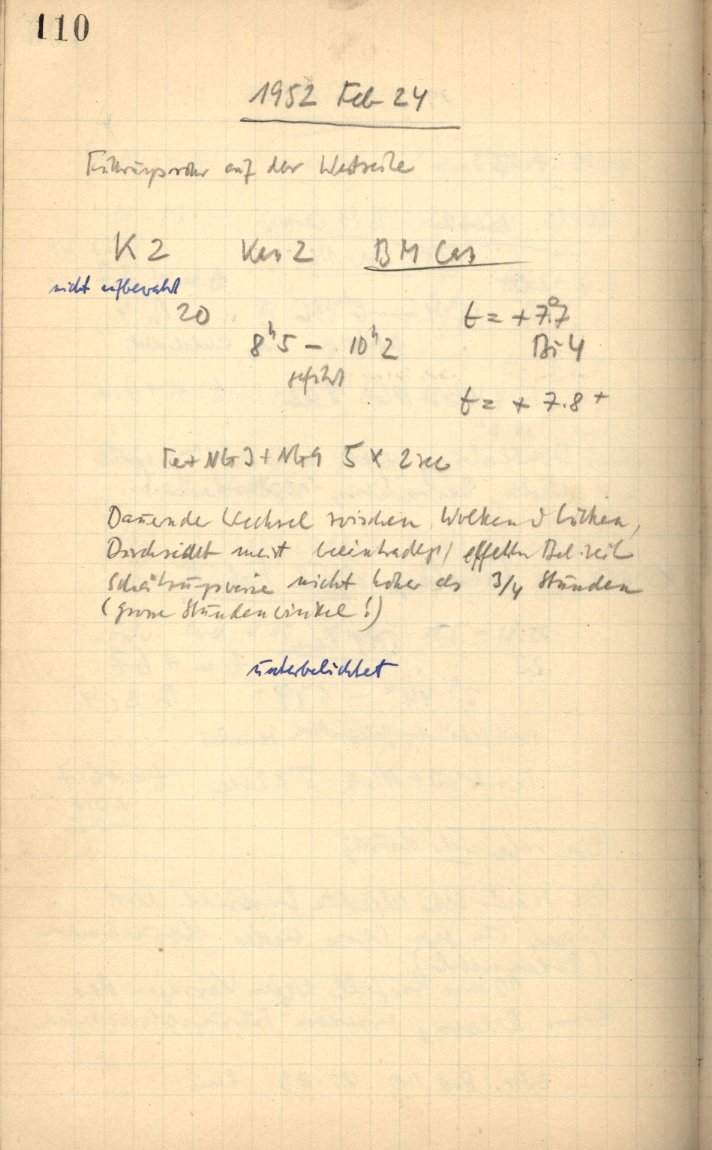 110
1952 Feb 24
Führungsrohr auf der Westseite
K 2 Kas 2 BM Cas
nicht aufbewahrt
20 t = + 7.°7
8ʰ5 – 10ʰ2 Bi 4
geführt
t = + 7.8 +
Fe + NG 3 + NG 9 5 × 2 sec
Dauernder Wechsel zwischen Wolken u Lücken,
Durchsicht meist beeinträchtigt, effektive Bel.zeit
schätzungsweise nicht höher als 3/4 Stunden
(grosse Stundenwinkel!)
unterbelichtet